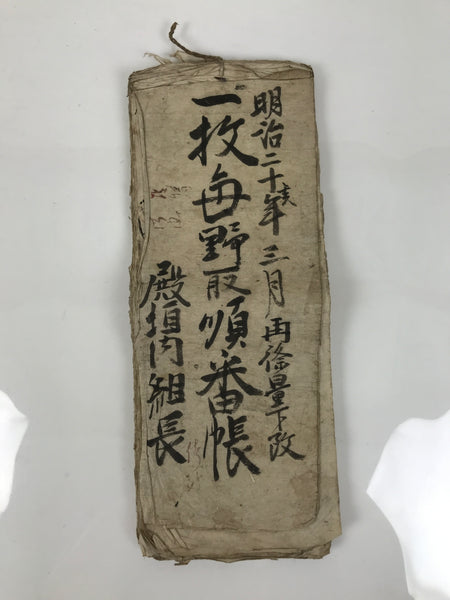 明治二十壱年三月再徐量下改
一枚毎野取順番帳
殿垣内組長